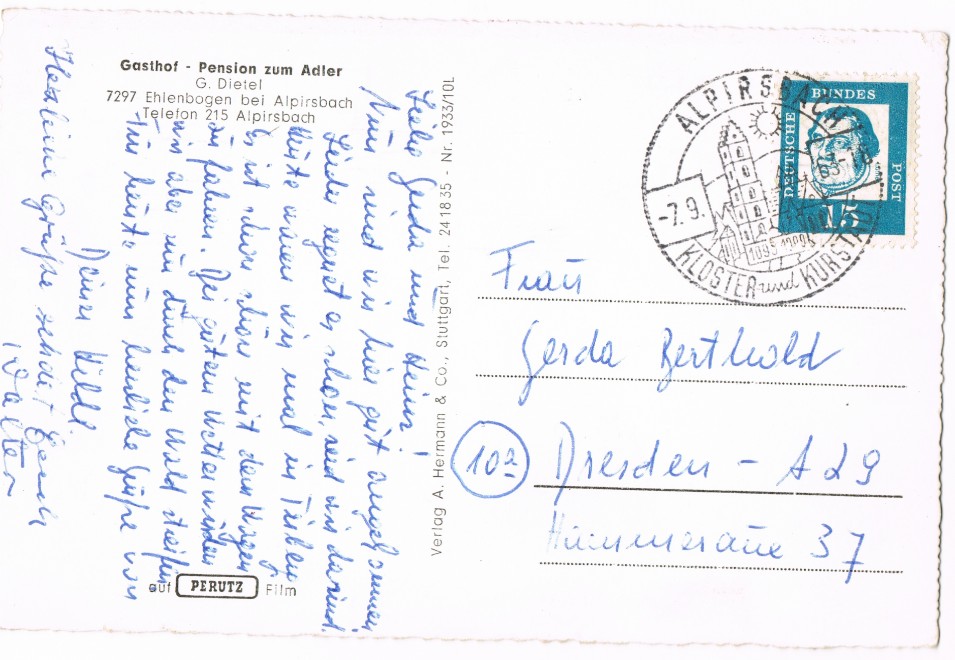 Gasthof - Pension zum Adler
G. Dietel
7297 Ehlenbogen bei Alpirsbach
Telefon 215 Alpirsbach
Liebe Gerda und Heinz!
Nun sind wir hier gut angekommen
Leider regnet es schon, seid wir da sind.
Heute waren wir mal in
Es ist schon schön mit dem Wagen
zu fahren. Bei gutem Wetter würden
wir aber nur durch den Wald streifen
Für heute nun herzliche Grüße von
Deiner Hilde
Herzliche Grüße sendet Euch
Walter
auf PERUTZ Film
Verlag A. Hermann & Co., Stuttgart, Tel. 241835 - Nr. 1933/10L
ALPIRSBACH
-7.9.
63-18
1095
KLOSTER und KURSTADT
DEUTSCHE BUNDESPOST
15
Frau
Gerda Berthold
10a
Dresden - A 29
37